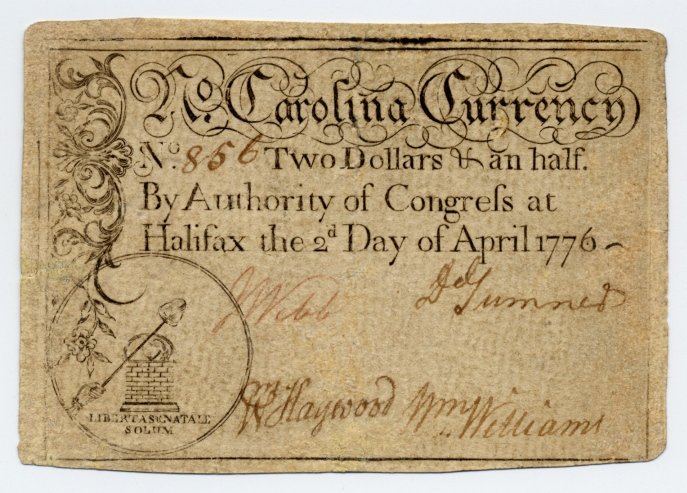 No. Carolina Currency
No. 856 Two Dollars & an half.
By Authority of Congreſs at
Halifax the 2d Day of April 1776
J Webb
Dd Sumner
Wm Haywood
Wm Williams
LIBERTAS & NATALE
SOLUM